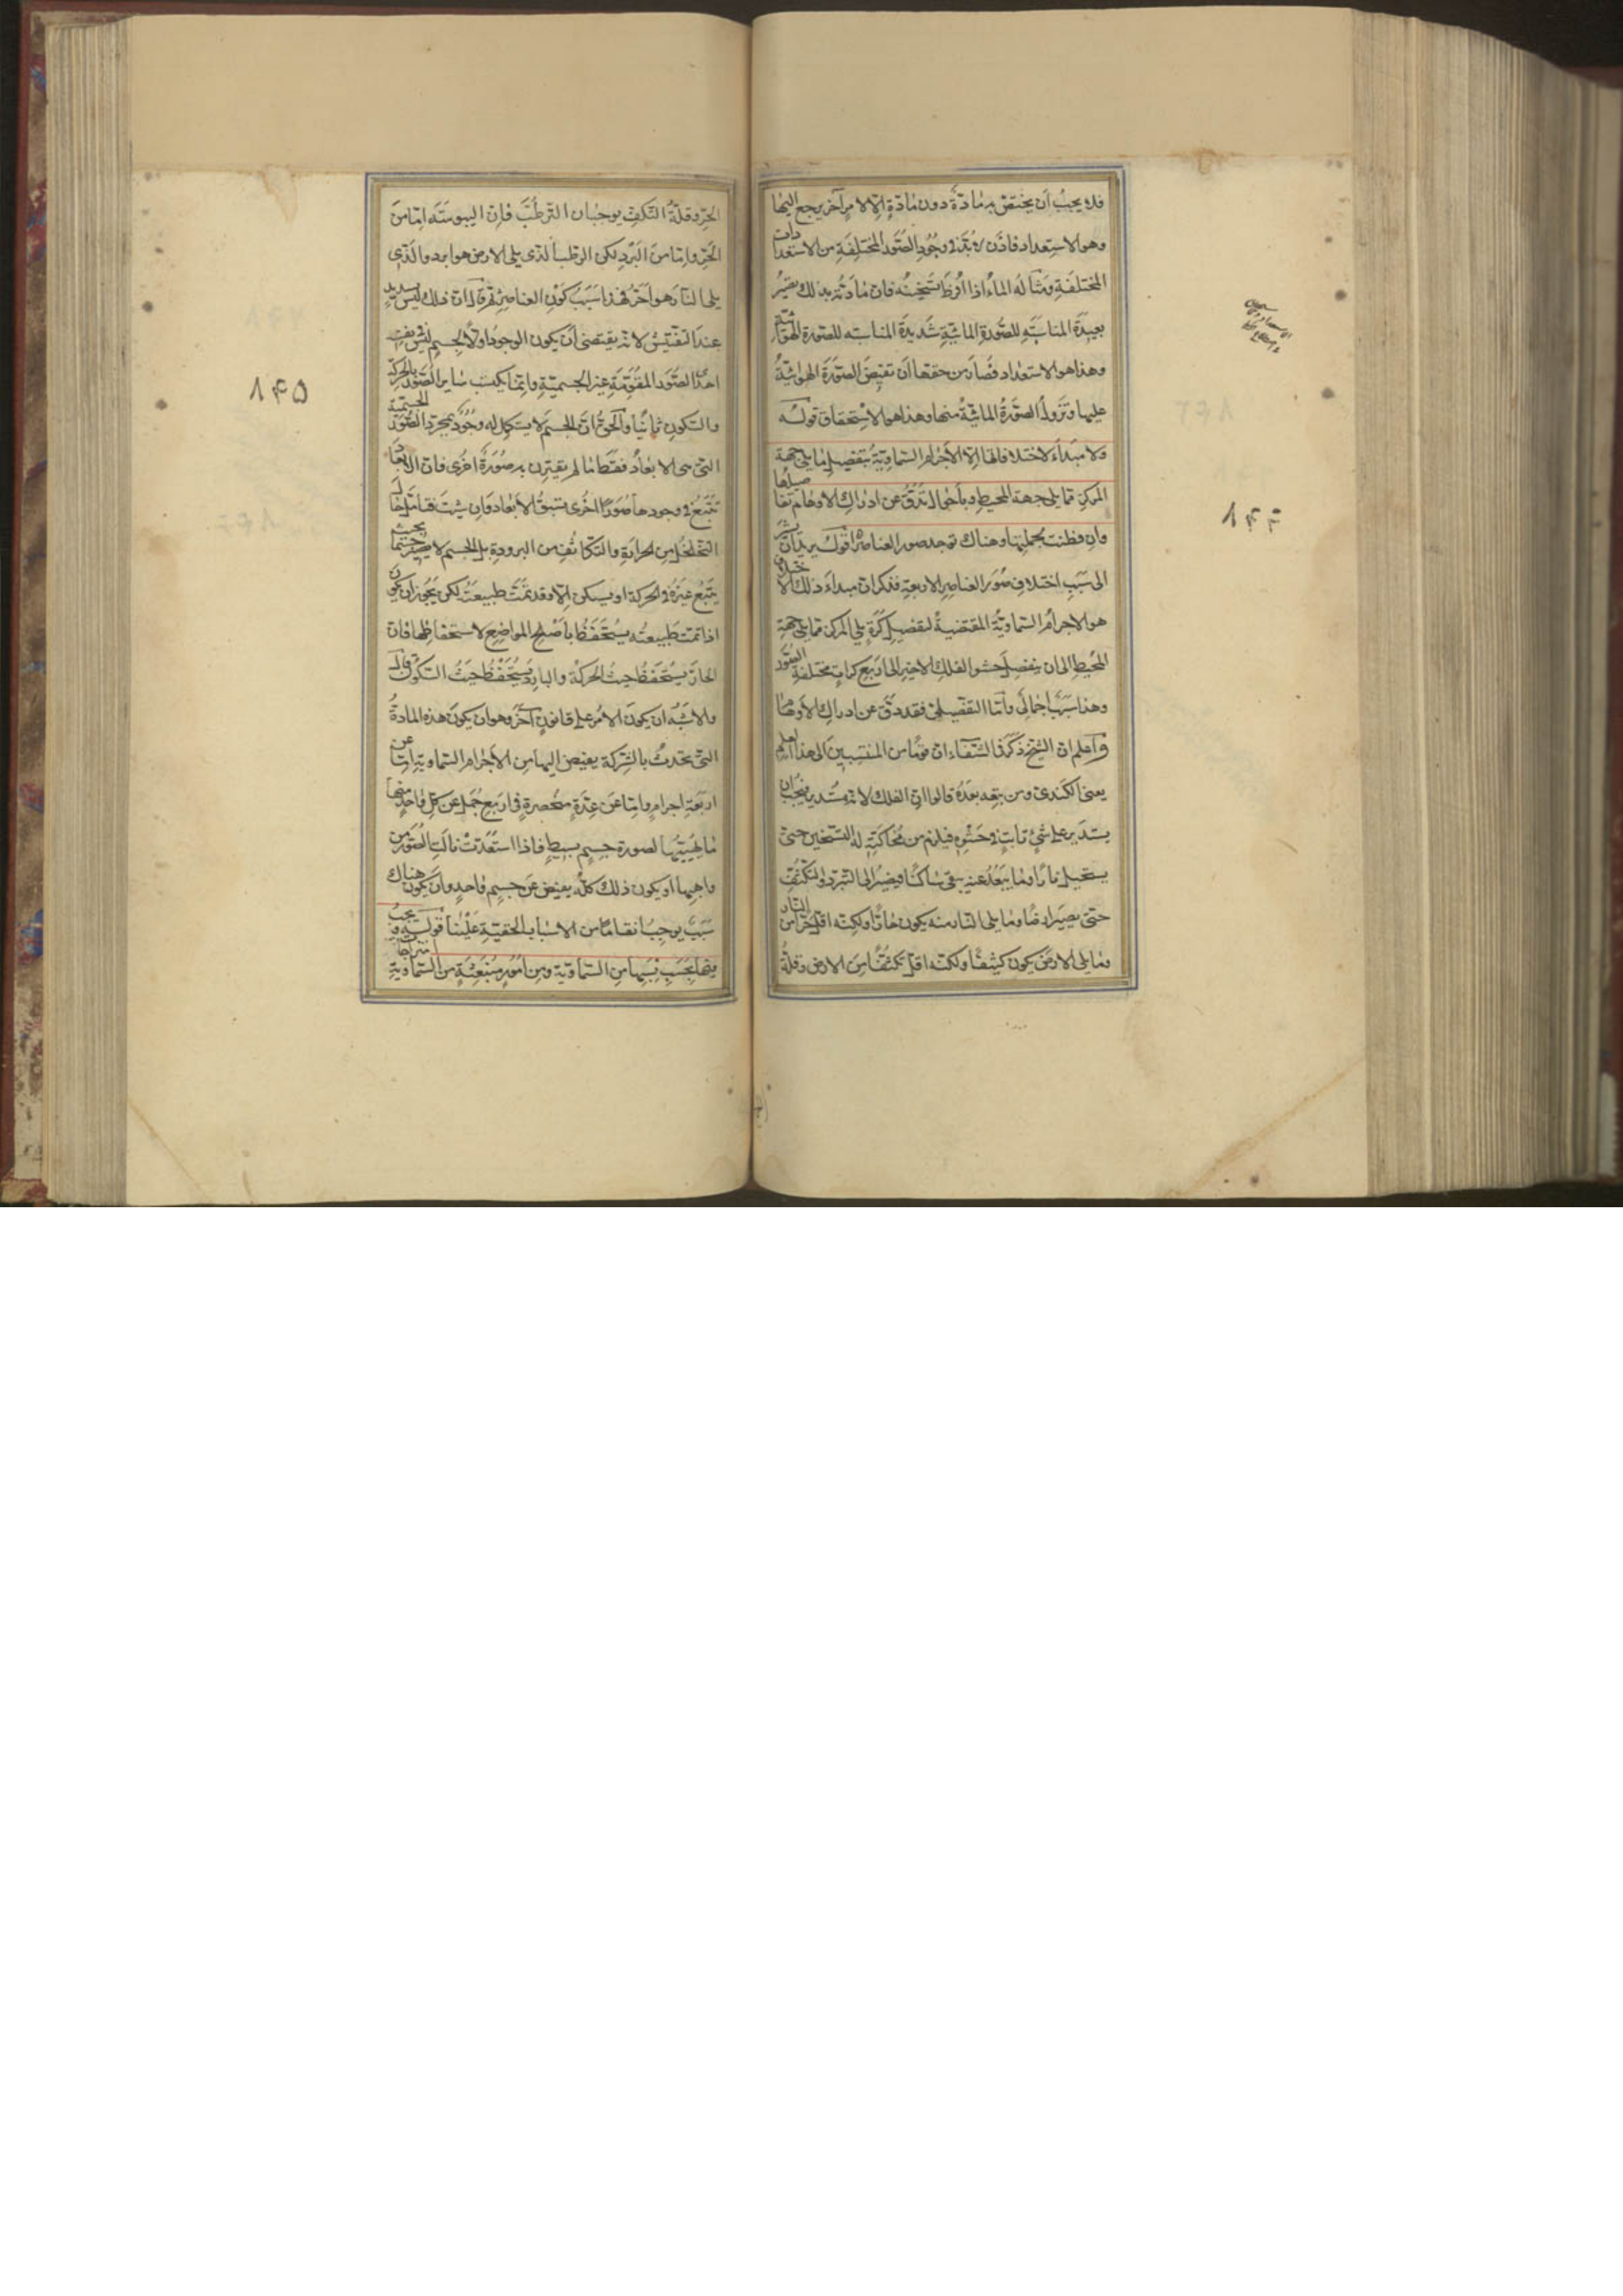 فلا يجب أن يختص به مادة دون مادة إلا لأمر آخر يرجع اليها
وهو الاستعداد فاذن لا بد في وجود الصور المختلفة من الاستعدادات
المختلفة ومثاله الماء اذا افرط تسخينه فان مادته بذلك تصير
بعيدة المناسبة للصورة المائية شديدة المناسبة للصورة الهوائية
وهذا هو الاستعداد فصار من حقها أن تفيض الصورة الهوائية
عليها وتزول الصورة المائية منها وهذا هو الاستحقاق قوله
ولا مبدأ لاختلافاتها إلا الأجرام السماوية بتفصيل ما يلي جهة
المركز مما يلي جهة المحيط وبأحوال تدق عن ادراك الاوهام تفاصيلها
وان فطنت لجملتها وهناك توجد صور العناصر اقول يريد أن يشير
الى سبب اختلاف صور العناصر الاربعة فذكر ان مبدأ ذلك الاختلاف
هو الاجرام السماوية المقتضية لتفصيل كرة يلي المركز مما يلي جهة
المحيط الى ان ينفصل حشو الفلك الاخير الى اربع كرات مختلفة الصور
وهذا سبب اجمالي وأما التفصيلي فقد دق عن ادراك الأوهام
واعلم ان الشيخ ذكر في الشفاء ان قوما من المنتسبين الى هذا العلم
يعني الكندي ومن تبعه بعده قالوا ان الفلك لانه مستدير فيجب ان
يستدير على شئ ثابت في حشوه فيلزم من محاكته له التسخين حتى
يستحيل نارا وما يبعد عنه يبقى ساكنا فيصير الى التبرد والتكثف
حتى يصير ارضا وما يلي النار منه يكون حارا ولكنه اقل حرا من النار
وما يلي الارض يكون كثيفا ولكنه اقل تكثفا من الارض وقلة
الحر وقلة التكثف يوجبان الترطب فإن اليبوسة إما من
الحر وإما من البرد لكن الرطب الذي يلي الارض هو ابرد والذي
يلي النار هو احر فهذا سبب كون العناصر ثم قال ان ذلك ليس بسديد
عند التفتيش لانه يقتضي أن يكون الوجود اولا لجسم ليس له في نفسه
احدى الصور المقومة غير الجسمية وإنما يكتسب سائر الصور بالحركة
والسكون ثانيا والحق ان الجسم لا يستكمل له وجود بمجرد الصورة الجسمية
التي هي الابعاد فقط ما لم يقترن به صورة اخرى فان الابعاد
تتبع في وجودها صورا اخرى تسبق الابعاد وان شئت فتأمل حال
التخلخل من الحرارة والتكاثف من البرودة بل الجسم لا يصير جسما بحيث
يتبع غيره في الحركة او يسكن إلا وقد تمت طبيعته لكن يجوز ان يكون
اذا تمت طبيعته يستحفظ بأصلح المواضع لاستحفاظها فان
الحار يستحفظ حيث الحركة والبارد يستحفظ حيث السكون قال
والاشبه ان يكون الامر على قانون آخر وهو ان يكون هذه المادة
التي تحدث بالشركة يفيض اليها من الأجرام السماوية إما عن
اربعة اجرام وإما عن عدة منحصرة في اربع جمل عن كل واحد منها
ما يهيئها لصورة جسم بسيط فاذا استعدت نالت الصور من
واهبها او يكون ذلك كله يفيض عن جسم واحد وأن يكون هناك
سبب يوجب انقساما من الاسباب الخفية علينا قوله ويجب
فيها بحسب نسبها من السماوية ومن أمور منبعثة من السماوية امتزاجات
١٤٥